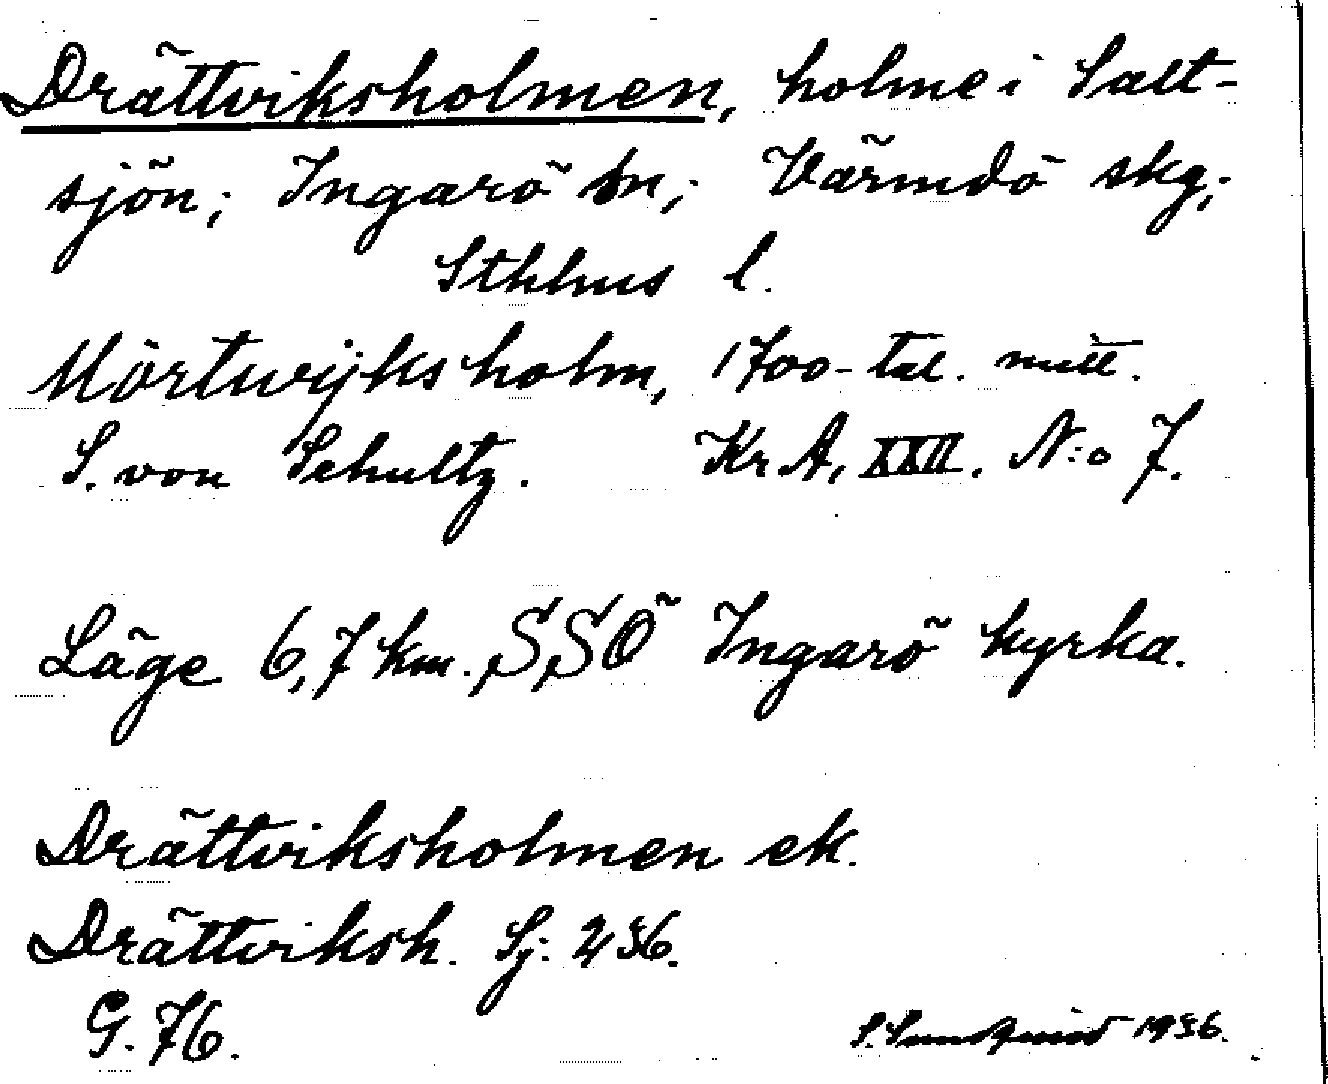 Drättviksholmen, holme i Salt-
sjön; Ingarö sn; Värmdö skg;
Sthlms l.
Mörtwijksholm, 1700-tal. mitt.
S. von Schultz. Kr A, XXII. N:o 7.
Läge 6,7 km. SSÖ Ingarö kyrka.
Drättviksholmen ek.
Drättviksh. Sj: 236.
G. 76.
S. Sundquist 1936.